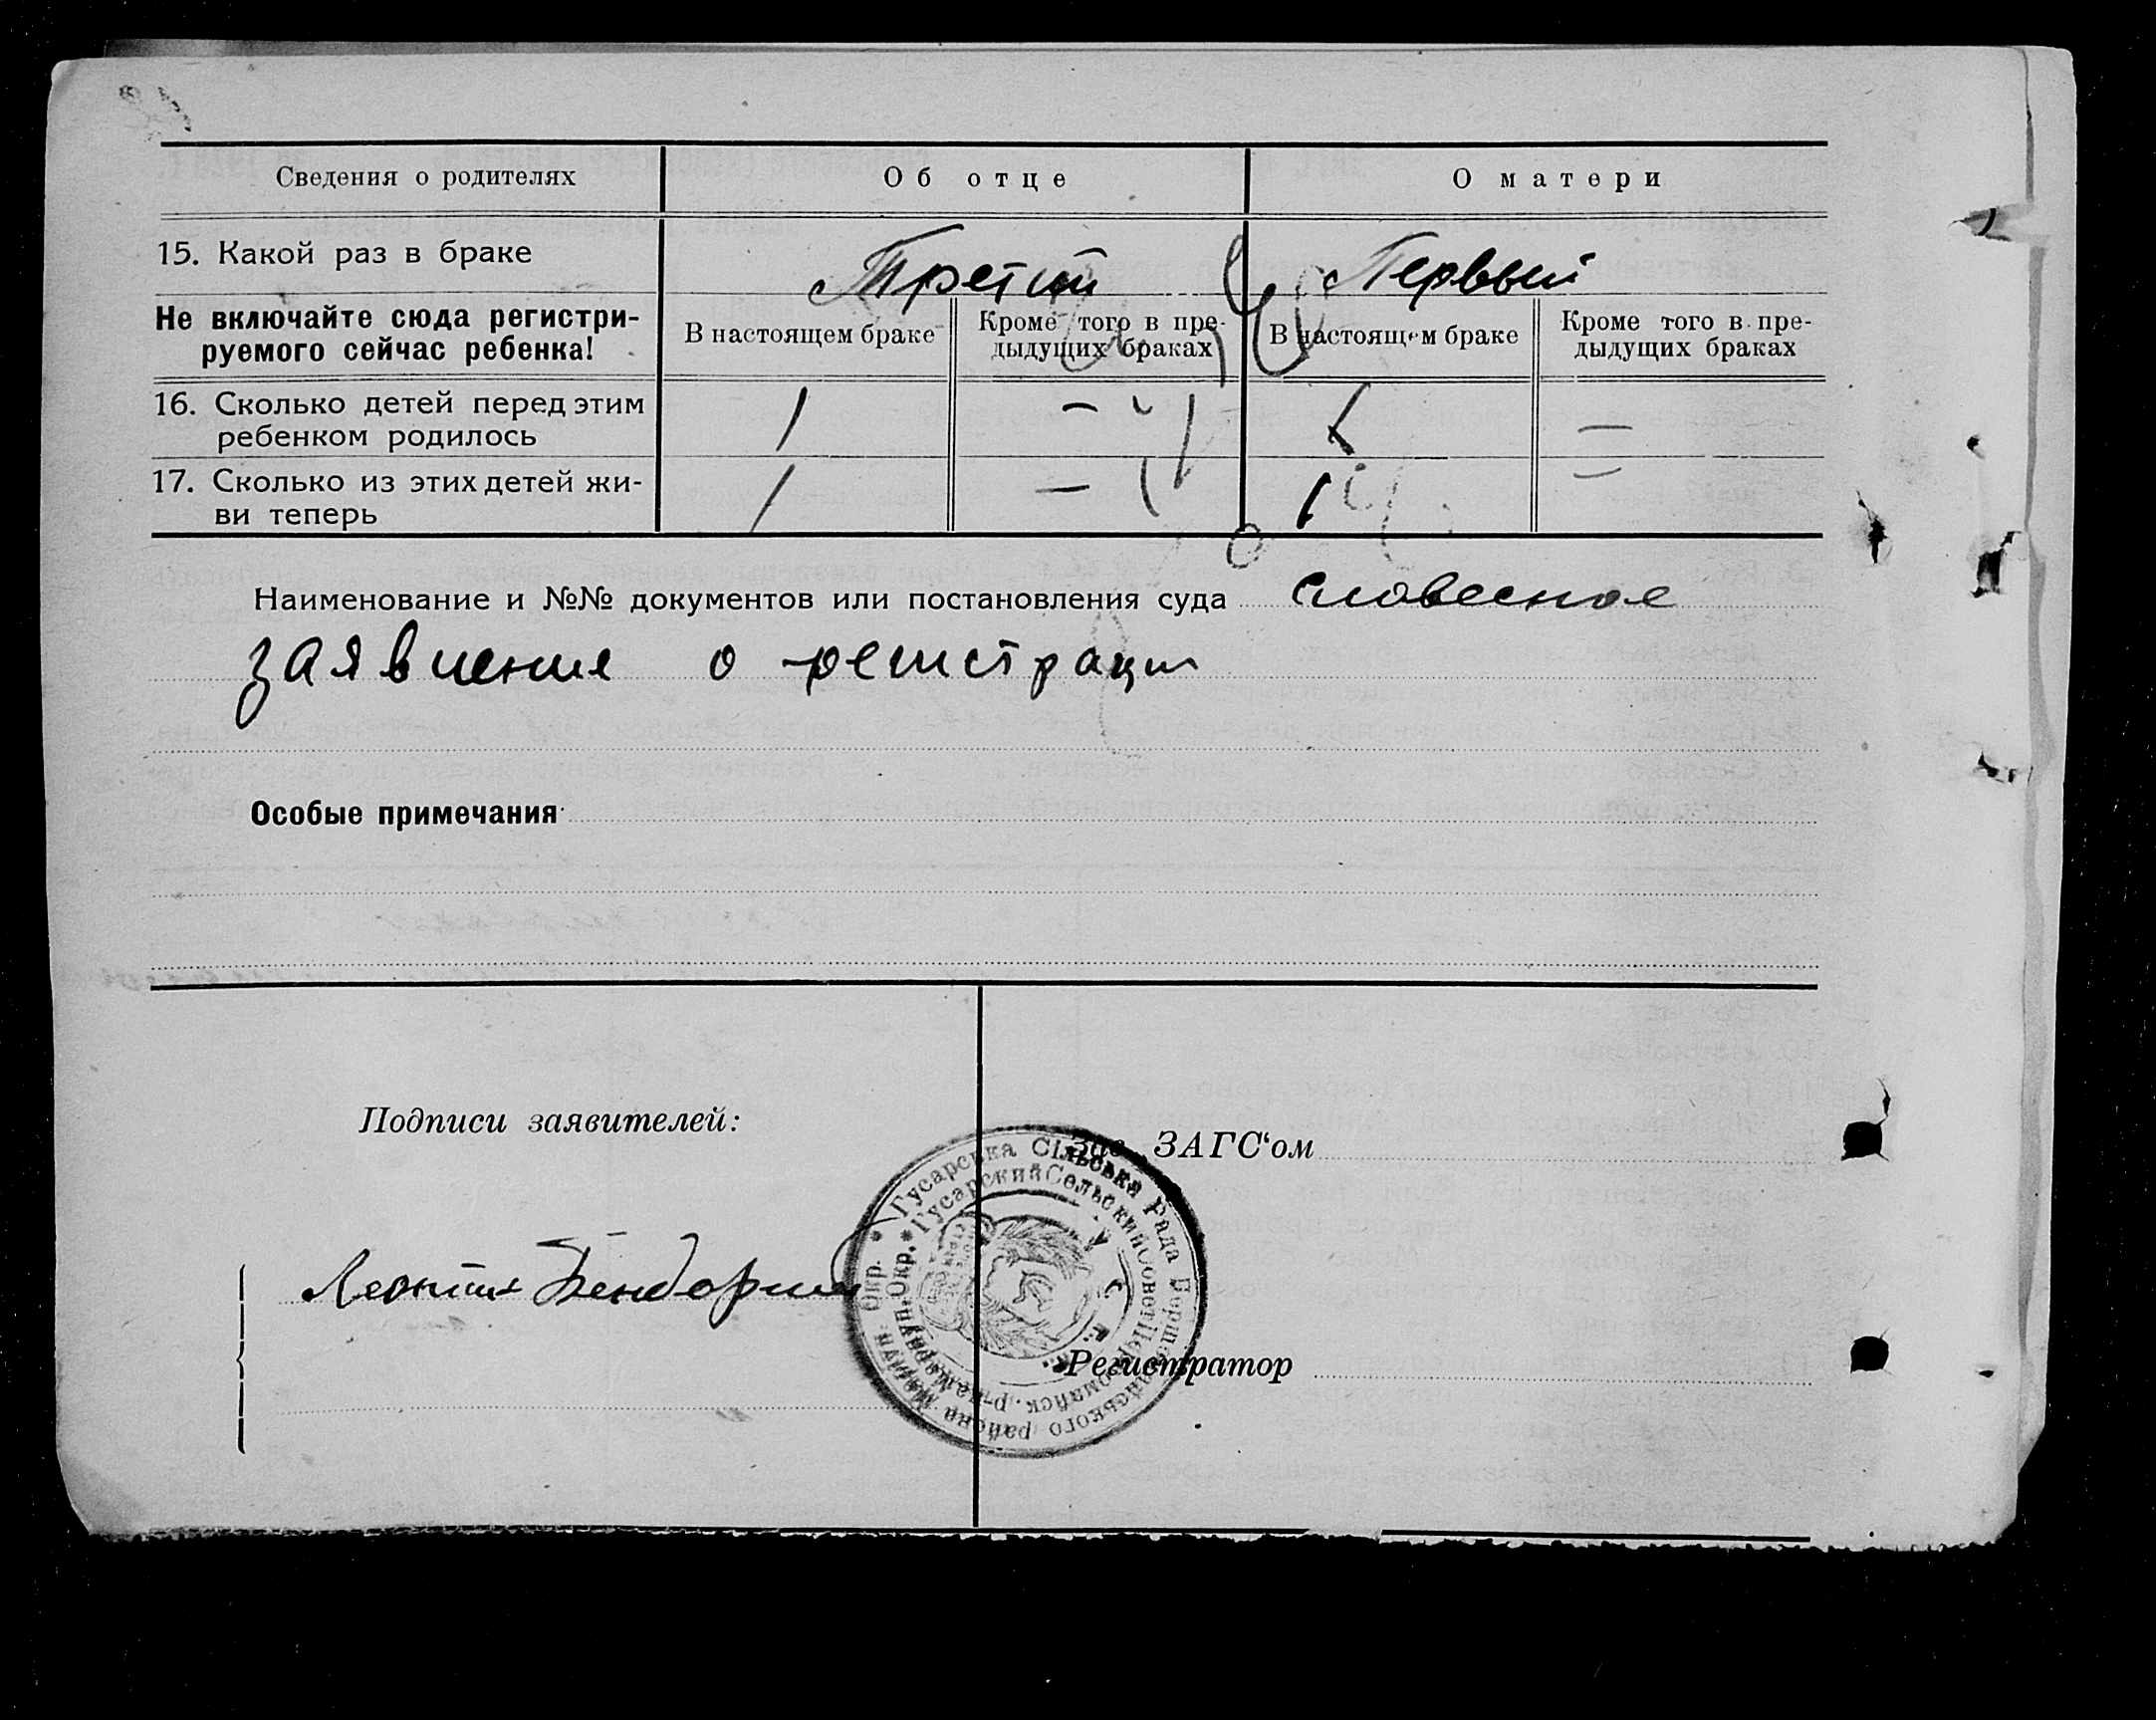 Сведения о родителях
Об отце
О матери
15. Какой раз в браке
Третий
Первый
Не включайте сюда регистри-
руемого сейчас ребенка!
В настоящем браке
Кроме того в пре-
дыдущих браках
В настоящем браке
Кроме того в пре-
дыдущих браках
16. Сколько детей перед этим
ребенком родилось
1
—
1
—
17. Сколько из этих детей жи-
ви теперь
1
—
1
—
Наименование и №№ документов или постановления суда словесное
заявление о регистрации
Особые примечания
Подписи заявителей:
Зав. ЗАГС‘ом
Регистратор
Гусарська Сільська Рада Першотравнського района Маріуп. Окр.
Гусарский Сельский Совет Первомайск. р-на Мариуп. Окр.